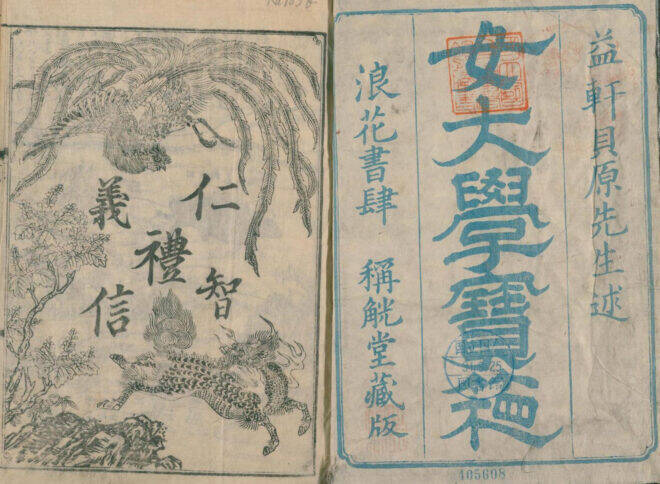 益軒貝原先生述
女大學寶箱
浪花書肆　稱觥堂藏版
仁
智
禮
義
信
105608